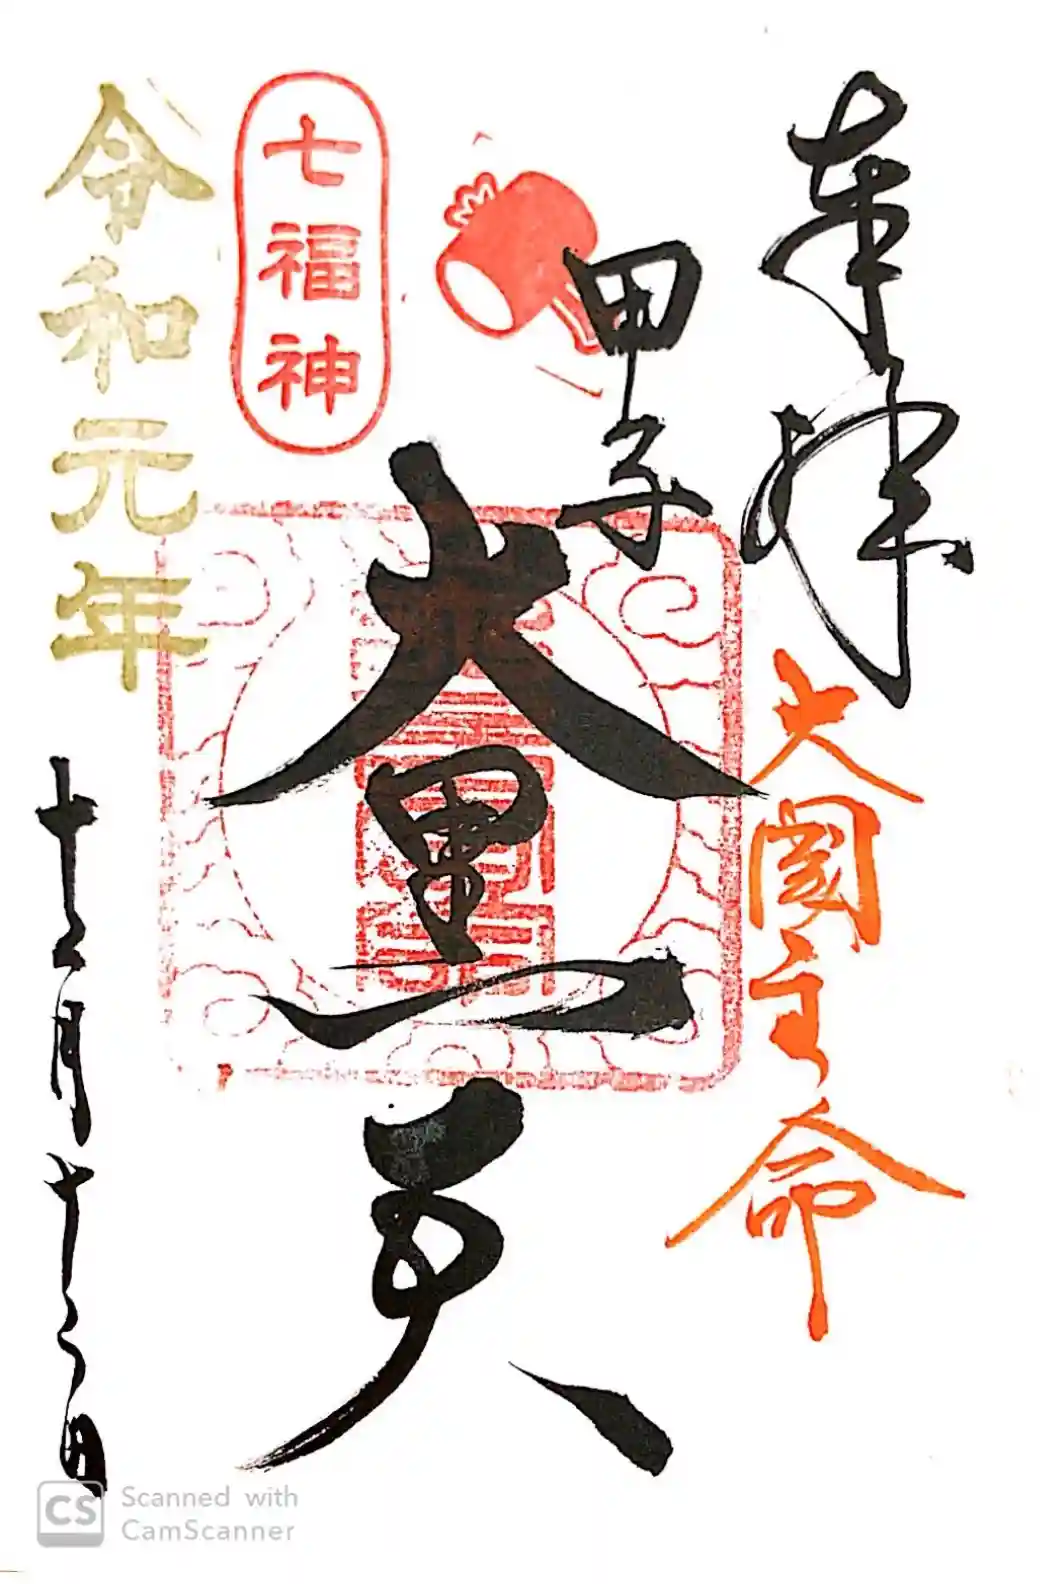 奉拝
大國主命
甲子
大黒天
七福神
令和元年
十二月十二日
Scanned with
CamScanner